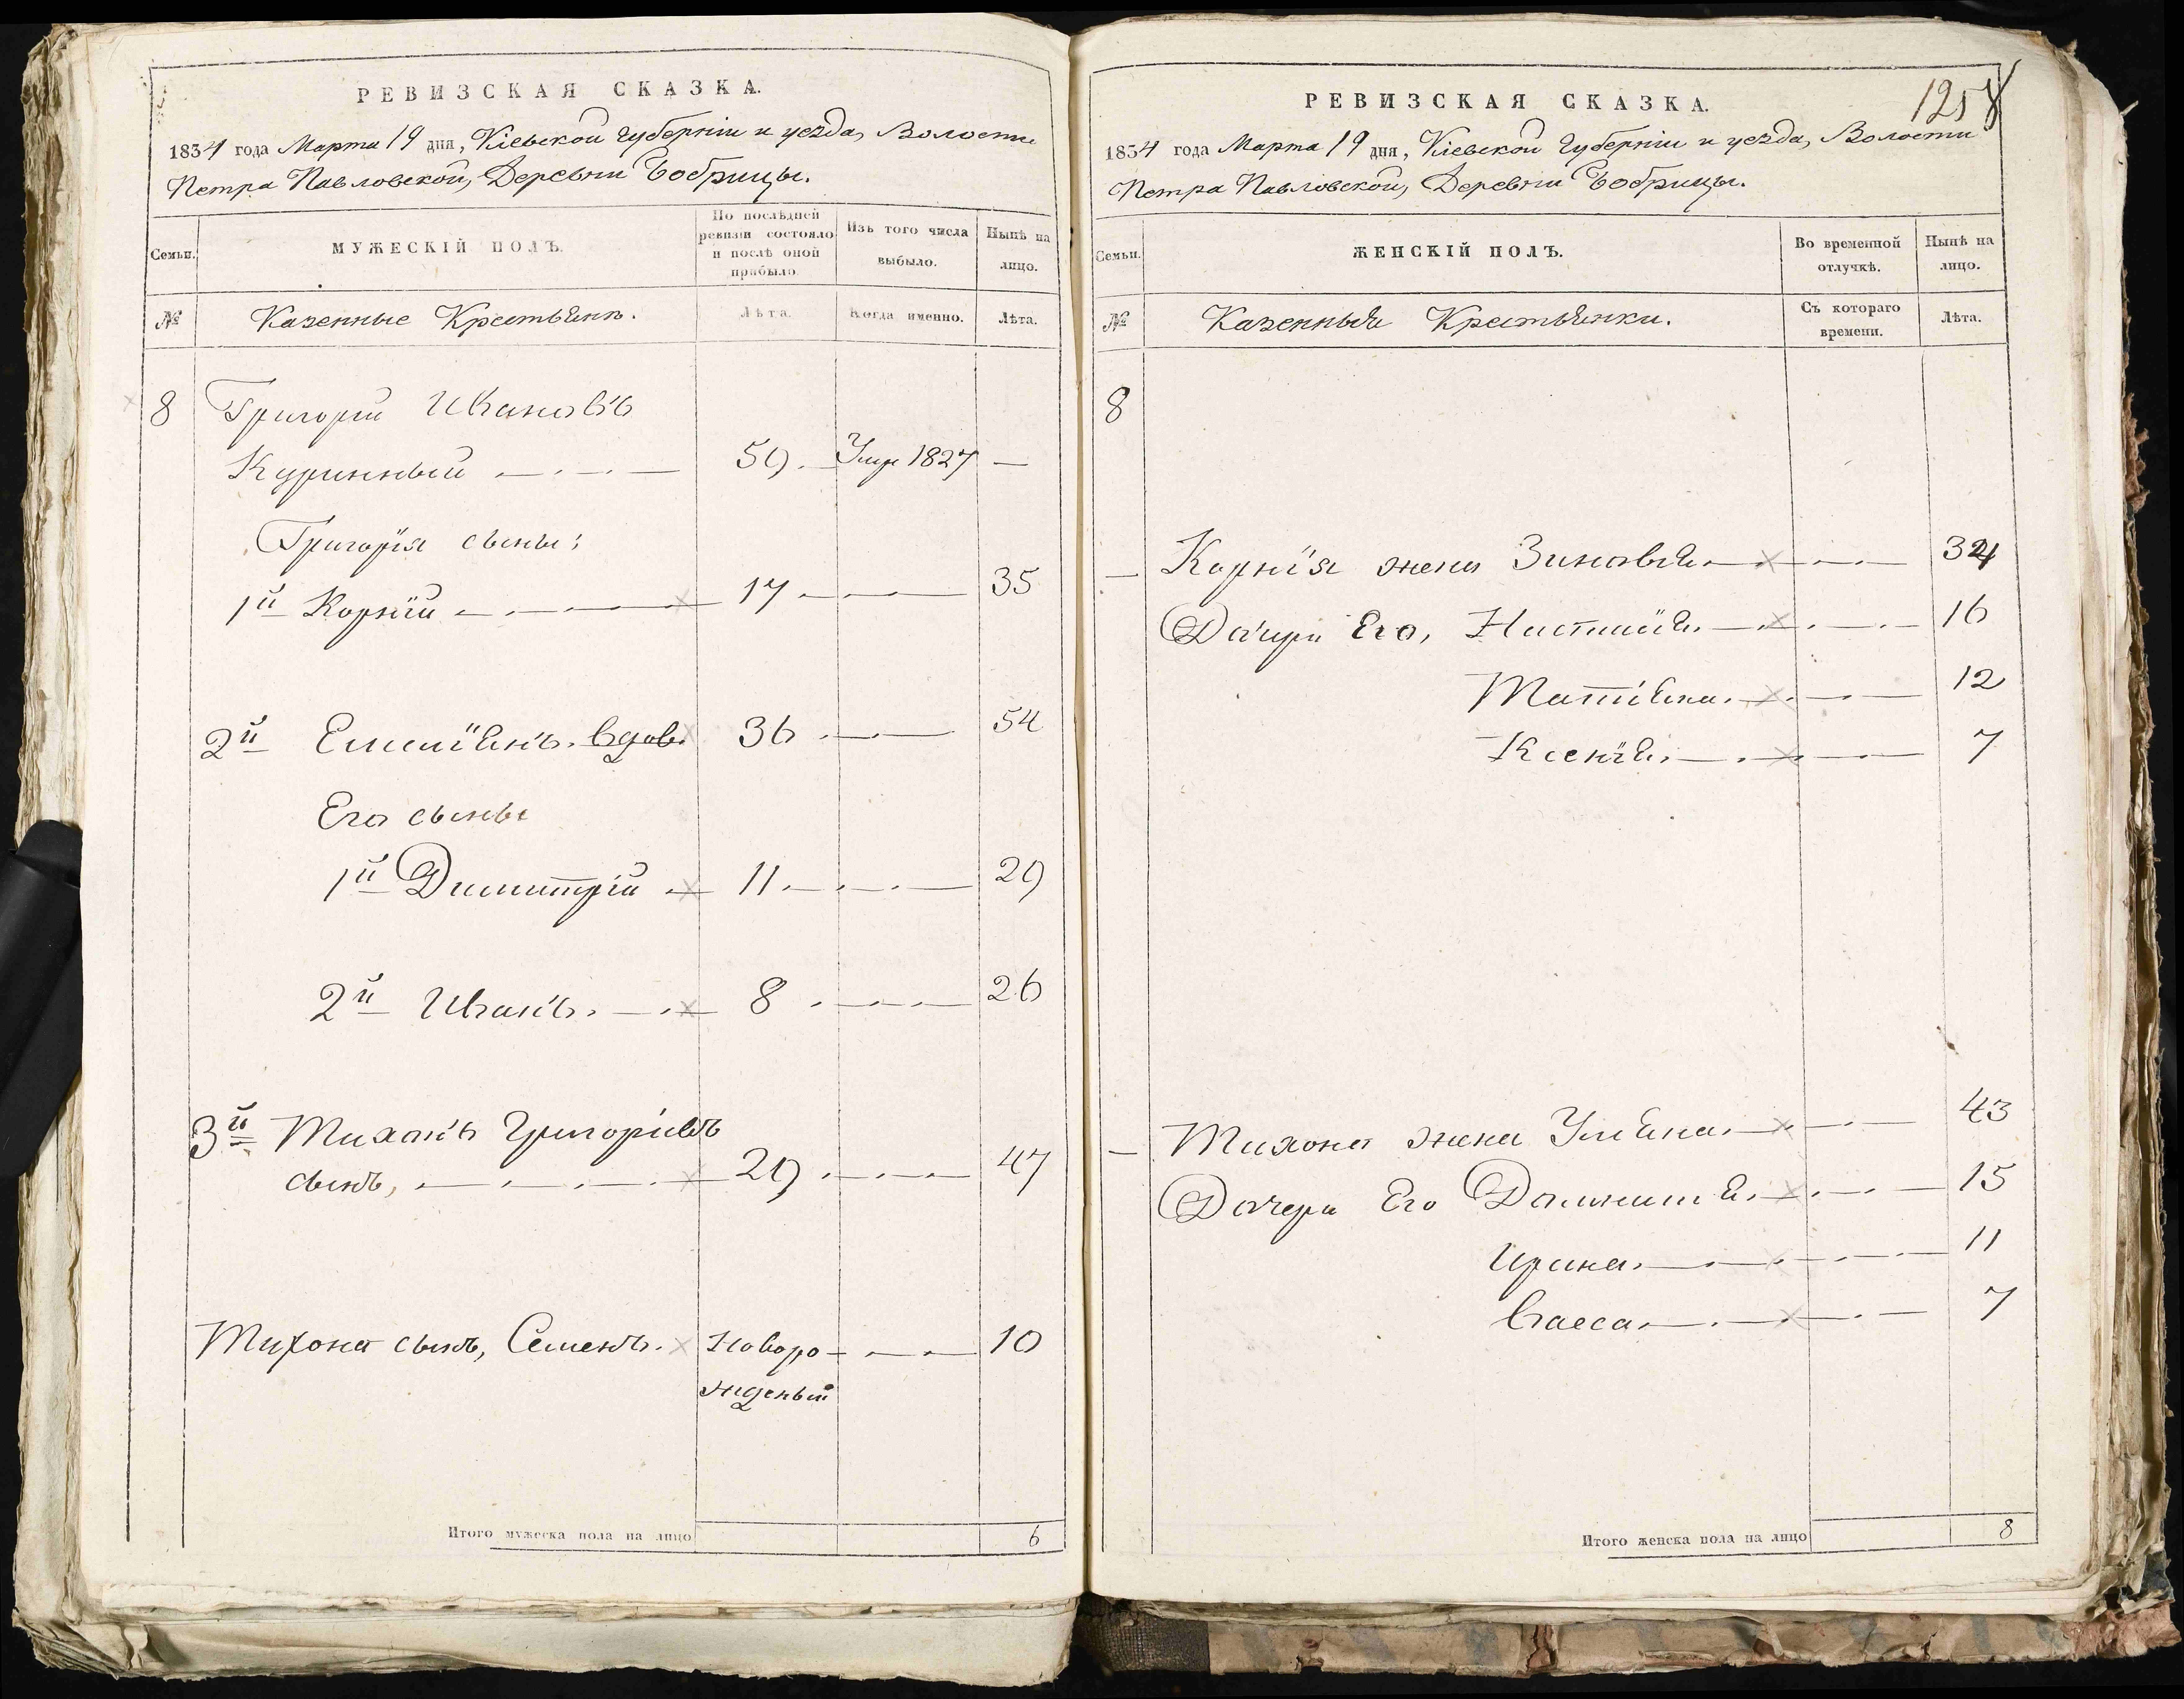 РЕВИЗСКАЯ СКАЗКА.
1834 года Марта 19 дня, Кіевской губерніи и уезда, Волости
Петра Павловской, Деревни Бобрицы.
Семьи.
МУЖЕСКІЙ ПОЛЪ.
По послѣдней ревизіи состояло и послѣ оной прибыло
Изъ того числа выбыло.
Нынѣ на лицо.
№
Казенные Крестьяне.
Лѣта.
Когда именно.
Лѣта.
8 Григорій Ивановъ
Куринный 59. Умре 1827
Григорія сыны:
1й Корній 17 35
2й Емиліянъ. вдов 36 54
Его сыны
1й Димитрій 11 29
2й Иванъ. 8 26
3й Тихонъ Григоріевъ
сынъ, 29 47
Тихона сынъ, Семенъ. Новоро- 10
жденый
Итого мужеска пола на лицо 6
125
РЕВИЗСКАЯ СКАЗКА.
1834 года Марта 19 дня, Кіевской Губерніи и уезда, Волости
Петра Павловской, Деревни Бобрицы.
Семьи.
ЖЕНСКІЙ ПОЛЪ.
Во временной отлучкѣ.
Нынѣ на лицо.
№
Казенныя Крестьянки.
Съ котораго времени.
Лѣта.
8
Корнія жена Зиновія 34
Дочери Его, Настасія 16
Татіяна. 12
Ксенія. 7
Тихона жена Уліяна 43
Дочери Его Домникія. 15
Ирина. 11
Васса 7
Итого женска пола на лицо 8